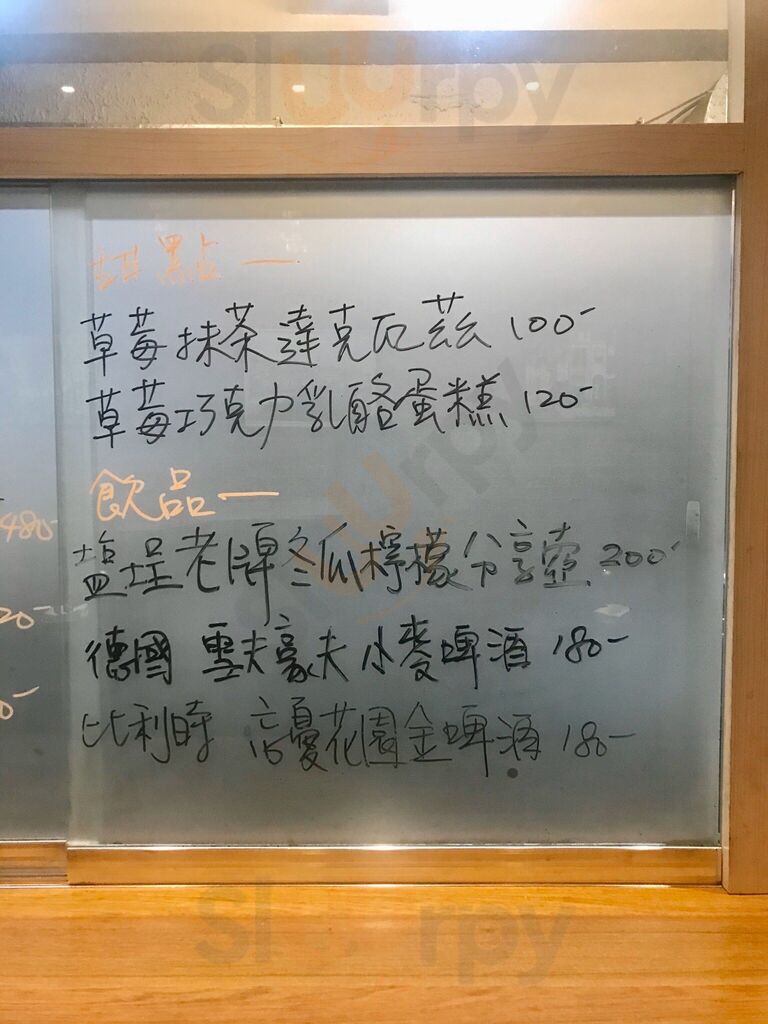 甜點 —
草莓抹茶達克瓦茲 100-
草莓巧克力乳酪蛋糕 120-
飲品 —
480-
塩埕老牌冬瓜檸檬分享壺 200-
20-
德國 雪夫豪夫小麥啤酒 180-
比利時 忘憂花園金啤酒 180-
Sluurpy
Sluurpy
Sluurpy